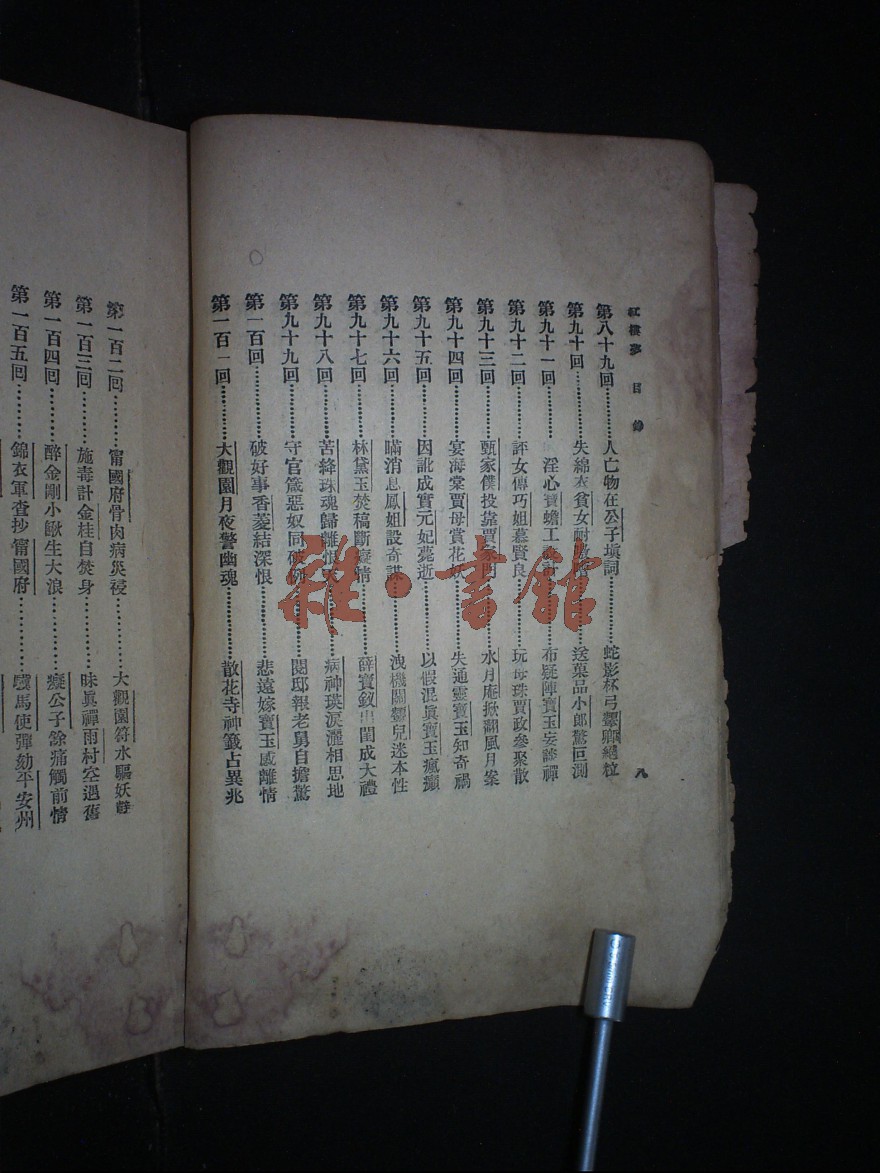 紅樓夢 目錄
八
第八十九回………人亡物在公子填詞………蛇影杯弓顰卿絕粒
第九十回………失綿衣貧女耐………送菓品小郎驚叵測
第九十一回………淫心寶蟾工………布疑陣寶玉妄談禪
第九十二回………評女傳巧姐慕賢良………玩母珠賈政參聚散
第九十三回………甄家僕投靠賈家門………水月庵掀翻風月案
第九十四回………宴海棠賈母賞花妖………失通靈寶玉知奇禍
第九十五回………因訛成實元妃薨逝………以假混眞寶玉瘋癲
第九十六回………瞞消息鳳姐設奇謀………洩機關顰兒迷本性
第九十七回………林黛玉焚稿斷癡情………薛寶釵出閨成大禮
第九十八回………苦絳珠魂歸離恨………病神瑛淚灑相思地
第九十九回………守官箴惡奴同破………閱邸報老舅自擔驚
第一百回………破好事香菱結深恨………悲遠嫁寶玉感離情
第一百一回………大觀園月夜警幽魂………散花寺神籤占異兆
第一百二回………甯國府骨肉病災祲………大觀園符水驅妖孽
第一百三回………施毒計金桂自焚身………昧眞禪雨村空遇舊
第一百四回………醉金剛小鰍生大浪………癡公子餘痛觸前情
第一百五回………錦衣軍查抄甯國府………驄馬使彈劾平安州
雜·書館